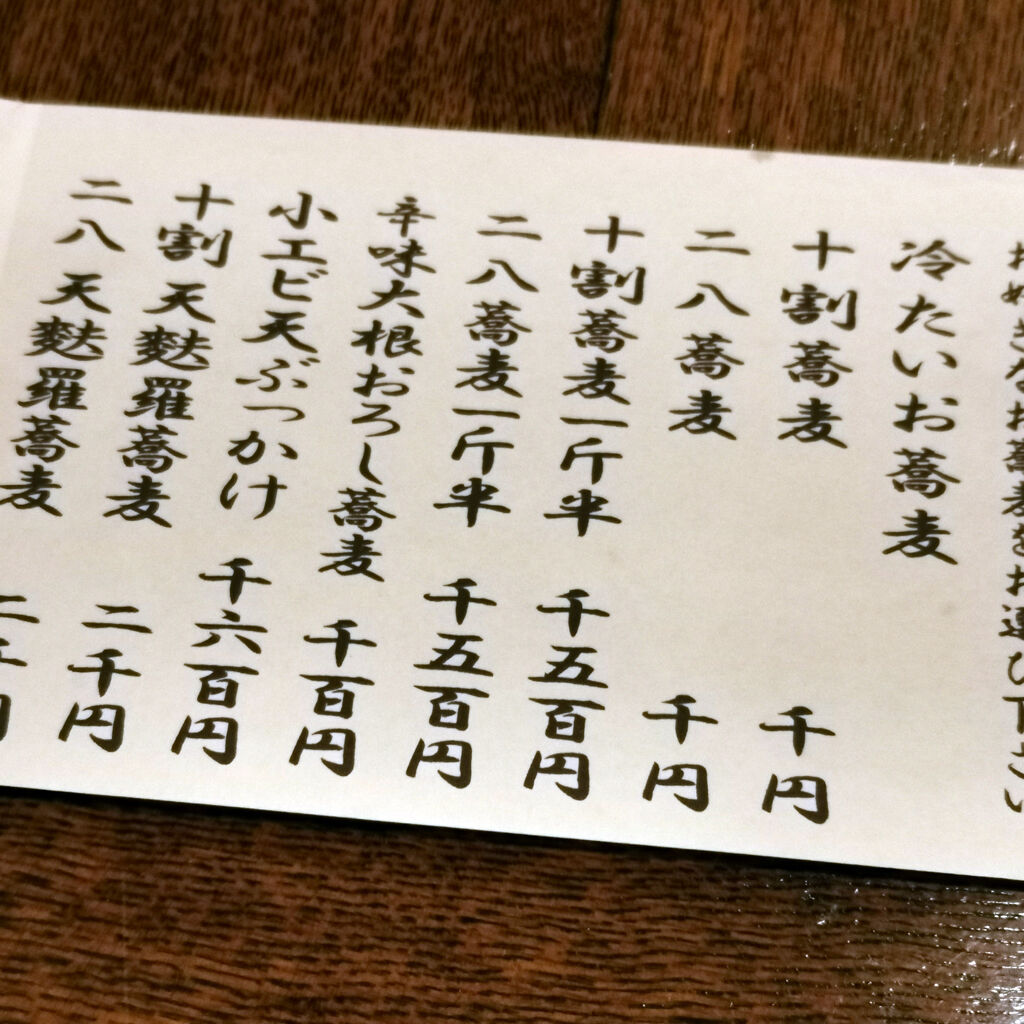 お好きなお蕎麦をお選び下さい
冷たいお蕎麦
十割蕎麦 千円
二八蕎麦 千円
十割蕎麦一斤半 千五百円
二八蕎麦一斤半 千五百円
辛味大根おろし蕎麦 千百円
小エビ天ぶっかけ 千六百円
十割 天麩羅蕎麦 二千円
二八 天麩羅蕎麦 二千円